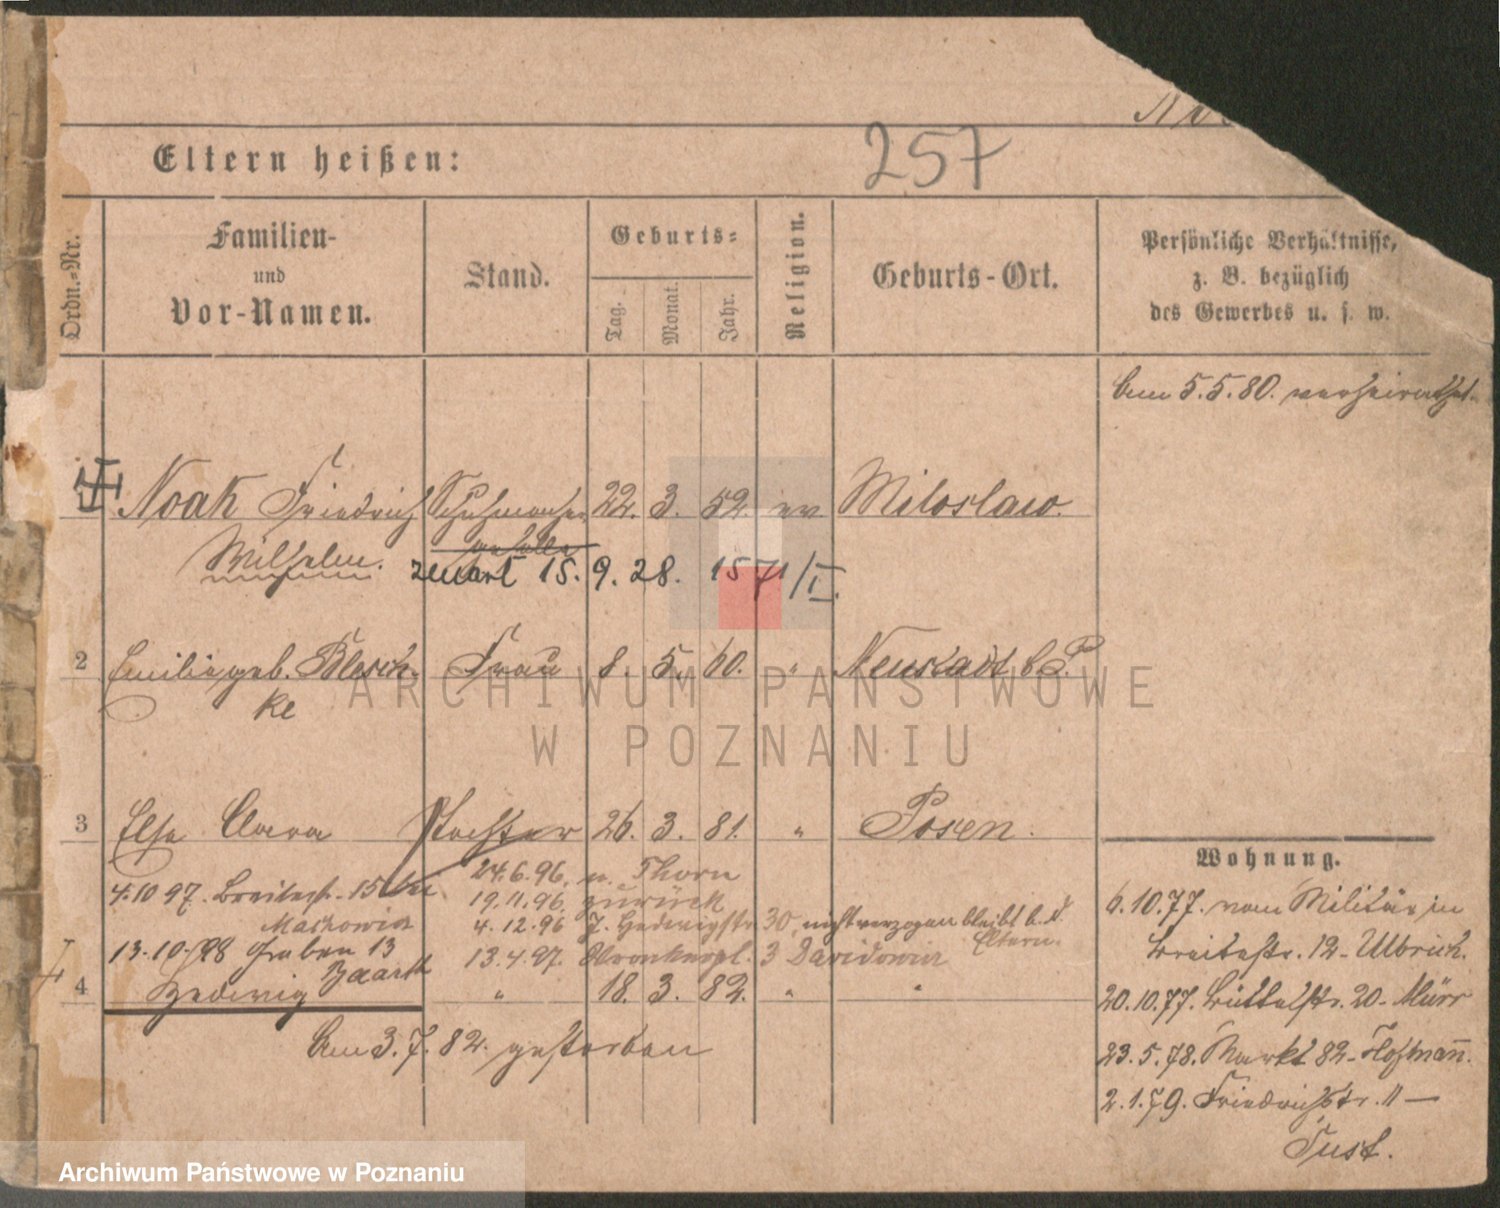 257
Eltern heißen:
Ordn.-Nr.
Familien-
und
Vor-Namen.
Stand.
Geburts-
Tag.
Monat.
Jahr.
Religion.
Geburts-Ort.
Persönliche Verhältnisse,
z. B. bezüglich
des Gewerbes u. s. w.
Am 5.5.80. verheirathet.
Noak Friedrich Schuhmacher 22. 3. 52. ev Miloslaw.
Wilhelm. geselle
15. 9. 28. 1571/I.
2 Emilie geb. Blesch- Frau 8. 5. 60. " Neustadt b. P.
ke
3 Elsa Clara Tochter 26. 3. 81. " Posen.
24.6.96. n. Thorn
4.10 97. Breitestr. 15 bei
19.11.96. zurück
Markowicz
4.12.96 J. Hedwigstr 30, nicht verzogen bleibt b. d.
Eltern.
13.10.98 Graben 13
13.4.97. 3 Davidowicz
Baarth
4 Hedwig " 18. 3. 82. " "
Am 3.7.82. gestorben
Wohnung.
6.10.77. vom Militär in
Breitestr. 12- Ulbrich.
20.10.77. Büttelstr. 20- Mürr
23.5.78. Markt 82- Hofmann.
2.1.79. Friedrichstr. 11 —
Just.
ARCHIWUM PAŃSTWOWE
W POZNANIU
Archiwum Państwowe w Poznaniu